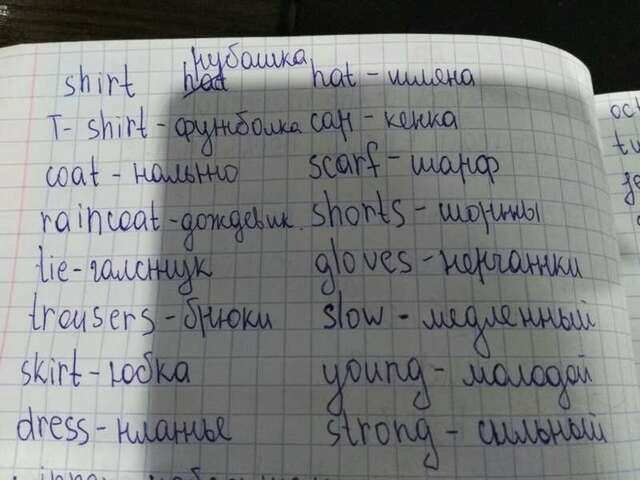 shirt рубашка hat - шляпа
T-shirt - футболка cap - кепка
coat - пальто scarf - шарф
raincoat - дождевик shorts - шорты
tie - галстук gloves - перчатки
trousers - брюки slow - медленный
skirt - юбка young - молодой
dress - платье strong - сильный